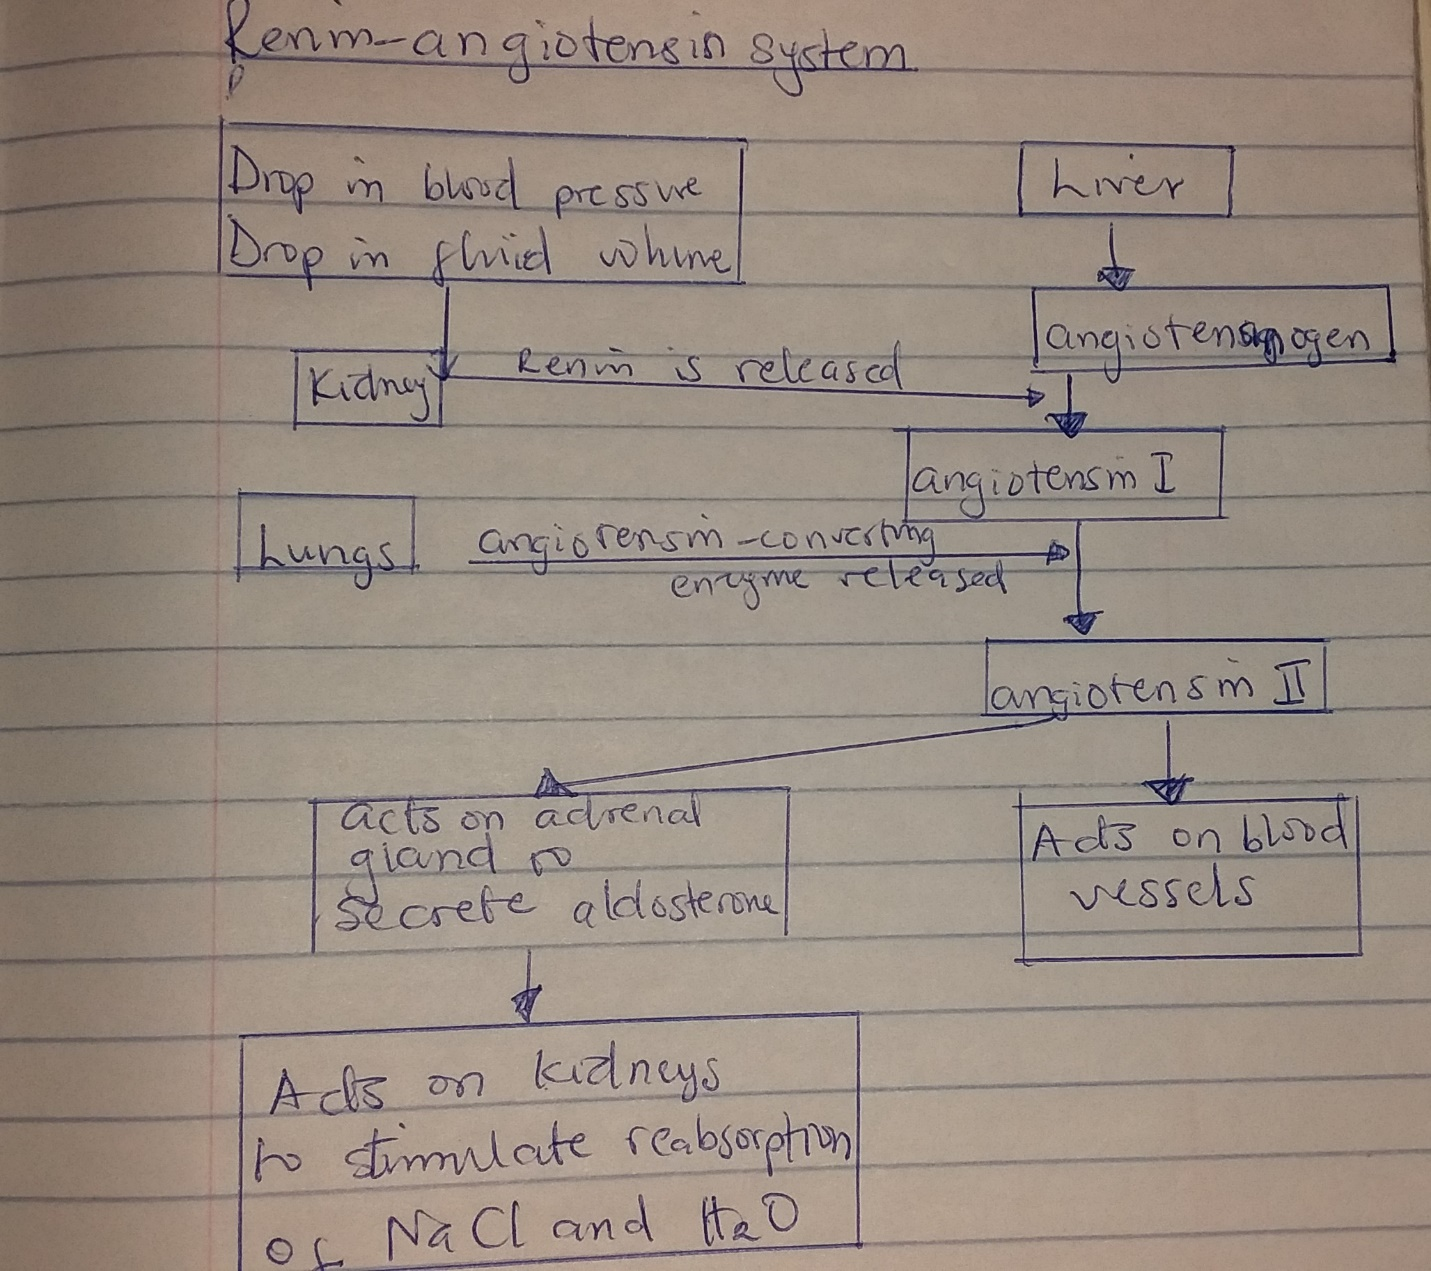 Renin-angiotensin system
Drop in blood pressure
Drop in fluid volume
Liver
angiotensinogen
Kidney
Renin is released
angiotensin I
Lungs
angiotensin-converting
enzyme released
angiotensin II
acts on adrenal
gland to
secrete aldosterone
Acts on blood
vessels
Acts on kidneys
to stimulate reabsorption
of NaCl and H2O